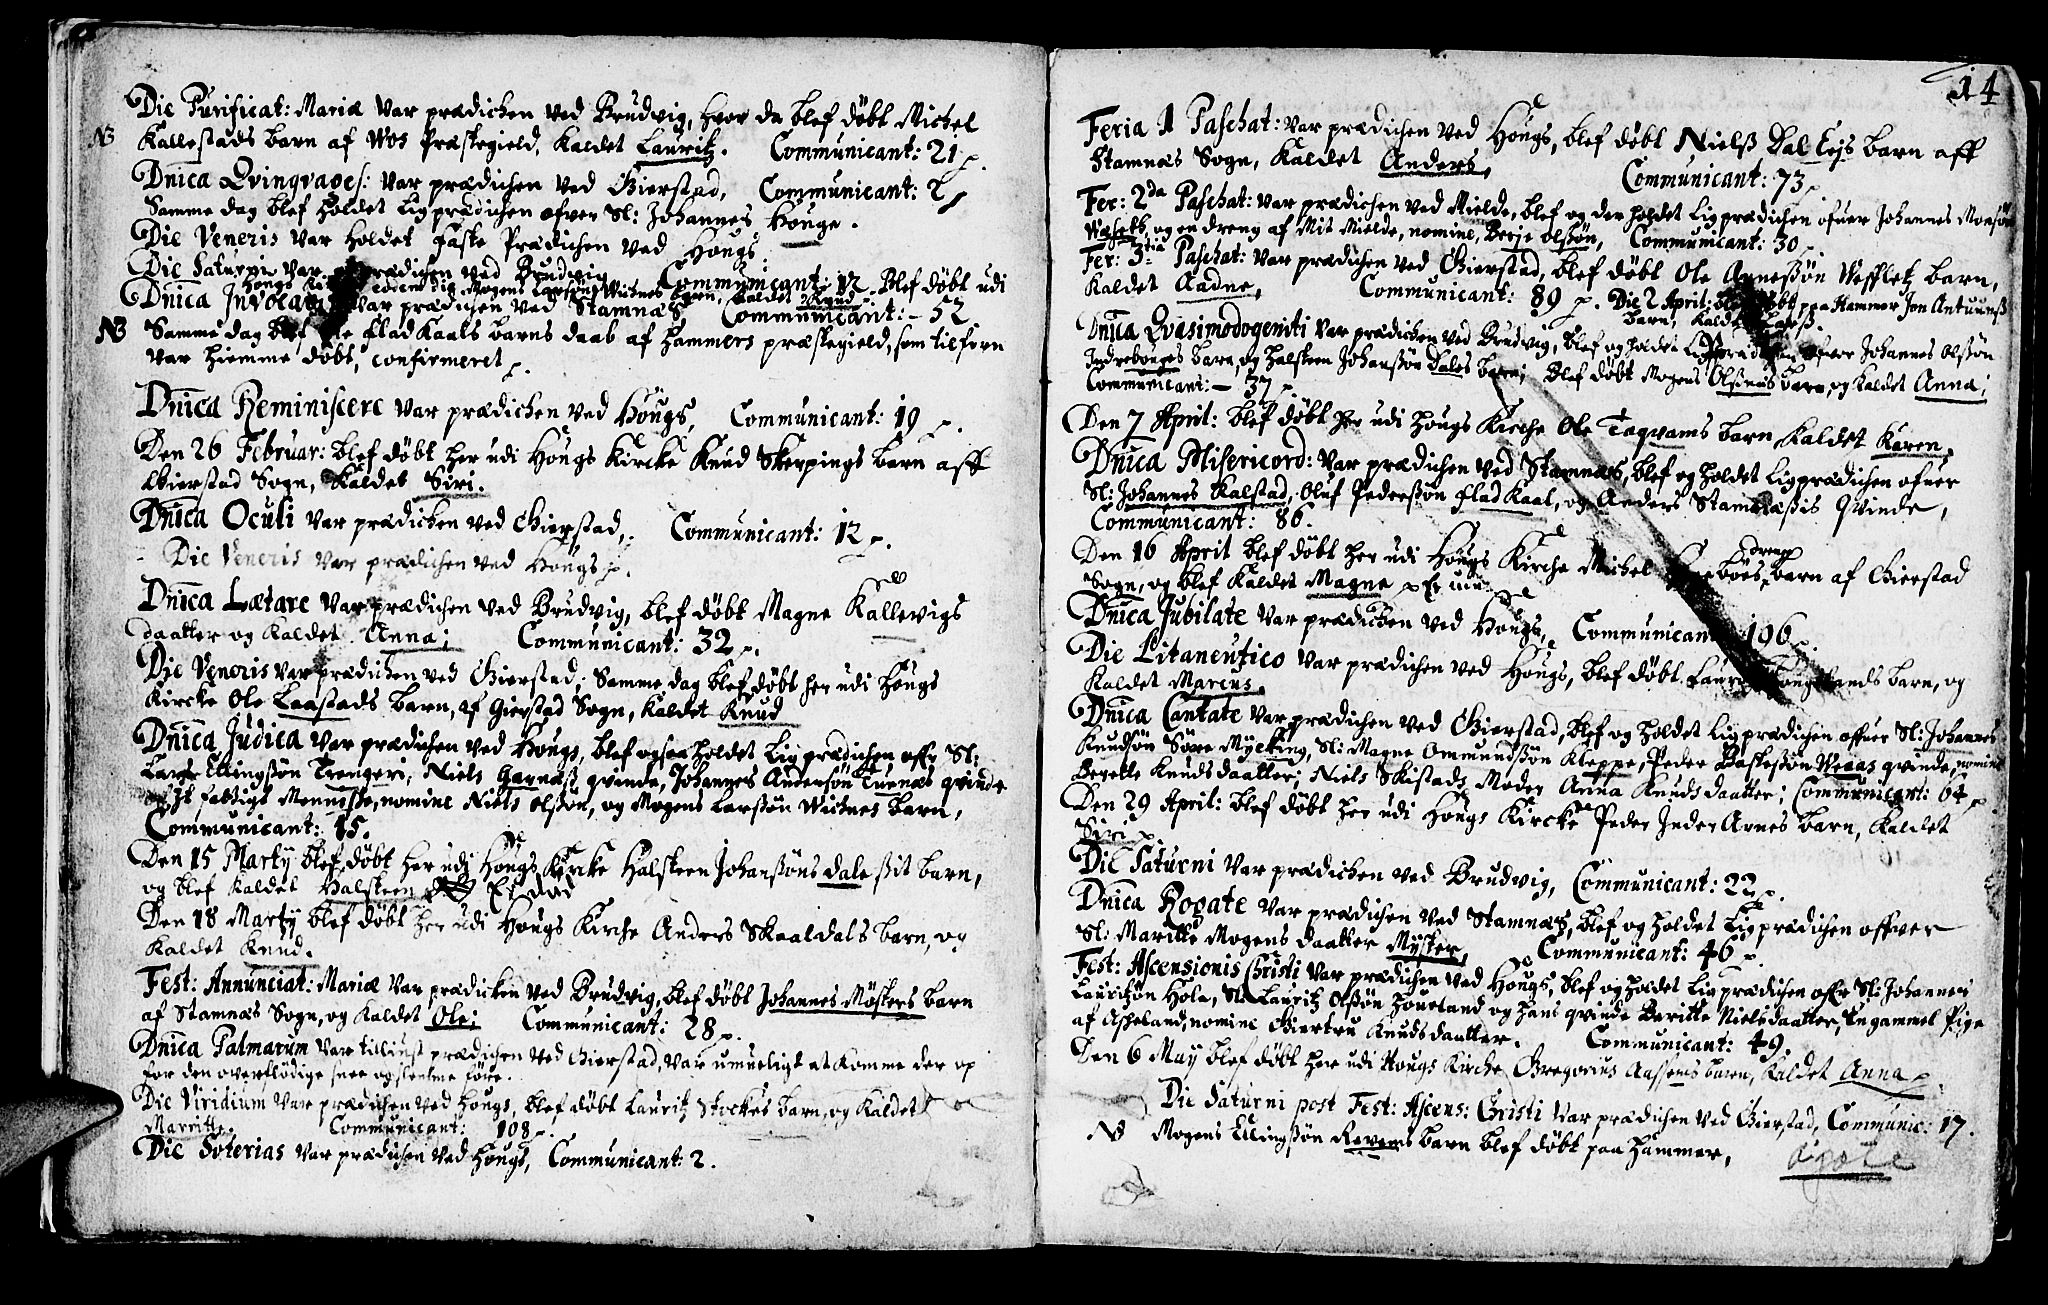 Die Purificat: Mariæ var prædichen ved Brudvig, hvor da blef døbt Michel
NB Kallestads barn af Vos Præstegield, kaldet Lauritz. Communicant: 21 p.
Dnica Qvinqvages: var prædichen ved Gierstad, Communicant: 2
Samme dag blef holdet ligprædichen ofver Sl: Johannes Houge.
Die Veneris var holdet faste Prædichen ved Hougs
Die Saturni var prædichen ved Brudvig Communicant: 12. Blef døbt udi
Hougs Mogens Larsøns Vicknes barn, kaldet Knud
Dnica Invocavit var prædichen ved Stamnæs Communicant: - 52
NB Samme dag blef Ole Flad Kaals barns daab af Hammers præstegield, som tilforn
var hiemme døbt, confirmeret p.
Dnica Reminiscere var prædichen ved Hougs, Communicant: 19 p.
Den 26 Februar: blef døbt her udi Hougs Kircke Knud Skerpings barn aff
Gierstad Sogn, kaldet Siri.
Dnica Oculi var prædicken ved Gierstad, Communicant: 12 p.
Die Veneris var prædichen ved Hougs p.
Dnica Lætare var prædichen ved Brudvig, blef døbt Magne Kallevigs
daatter og kaldet Anna; Communicant: 32 p.
Die Veneris var prædichen ved Gierstad; Samme dag blef døbt her udi Hougs
Kircke Ole Laastads barn, af Gierstad Sogn, kaldet Knud
Dnica Judica var prædichen ved Hougs, blef ogsaa holdet ligprædichen offr Sl:
Lars Ellingsøn Trengeri, Niels Garnæs qvinde, Johannes Andersøn Tuenæs qvinde
It fattigt Menniske, nomine Niels Olsøn, og Mogens Larsøn Vicknes barn,
Communicant: 15.
Den 15 Marty blef døbt her udi Hougs Kircke Halsteen Johansøns dale sit barn,
og blef kaldet Halsteen Er død
Den 18 Marty blef døbt her udi Hougs Kirche Anders Skaaldals barn, og
kaldet Knud.
Fest: Annunciat: Mariæ var prædicken ved Brudvig, blef døbt Johannes Møsters barn
af Stamnæs Sogn, og kaldet Ole; Communicant: 28 p.
Dnica Palmarum var tillyust prædichen ved Gierstad, var umueligt at komme der op
for den overflødige snee og slemme føre.
Die Viridium var prædichen ved Hougs, blef døbt Lauritz Stockes barn, og kaldet
Marritte. Communicant: 108 p.
Die Soterias var prædichen ved Hougs, Communicant: 2.
14
Feria 1 Paschat: var prædichen ved Hougs, blef døbt Nielß Dal Eejs barn aff
Stamnæs Sogn, kaldet Anders, Communicant: 73 p.
Fer: 2da Paschat: var prædichen ved Mielde, blef og der holdet ligprædichen ofuer Johannes Monsøn
og en dreng af Mit Mielde, nomine, Berje Olssøn, Communicant: 30
Fer: 3tia Paschat: var prædichen ved Gierstad, blef døbt Ole Arnesøn Veffletz barn,
kaldet Aadne, Communicant: 89 p. Die 2 April: blef døbt paa Hammer Jon Antuunß
barn, kaldet Larß.
Dnica Qvasimodogeniti var prædichen ved Brudvig, blef og holdet ligprædichen ofver Johannes Olssøn
Indrebougs barn, og Halsteen Johanssøn Dales barn; Blef døbt Mogens Olsnæs barn, og kaldet Anna;
Communicant: - 37 p.
Den 7 April: blef døbt her udi Hougs Kirche Ole Tagvams barn, kaldet Karen.
Dnica Misericord: var prædichen ved Stamnæs, blef og holdet ligprædichen ofuer
Sl: Johannes Kalstad, Oluf Pederssøn Flad Kaal, og Anders Stamnæssis qvinde,
Communicant: 86.
Den 16 April blef døbt her udi Hougs Kirche Michel bøes dreng barn af Gierstad
Sogn, og blef kaldet Magne
Dnica Jubilate var prædicken ved Hougs, Communicant: 196 p.
Die Litaneutico var prædichen ved Hougs, blef døbt Lauritz Houglands barn, og
kaldet Marcus.
Dnica Cantate var prædichen ved Gierstad, blef og holdet ligprædichen offuer Sl: Johannes
Knudsøn Søre Mycking, Sl: Magne Omundsøn Kleppe, Peder Baskessøn Veeas qvinde, nomine
Begette Knudsdaatter; Niels Skistads Moder Anna Knudsdaatter; Communicant: 64 p
Den 29 April: blef døbt her udi Hougs Kircke Peder Inder Arnes barn, kaldet
Siri p.
Die Saturni var prædichen ved Brudvig, Communicant: 22 p.
Dnica Rogate var prædichen ved Stamnæs, blef og holdet ligprædichen offver
Sl: Maritte Mogens daatter Myster, Communicant: 46 p.
Fest: Ascensionis Christi var prædichen ved Hougs, blef og holdet ligprædichen offr Sl: Johannes
Lauritzøn Hole, Sl: Lauritz Olssøn Houeland og hans qvinde Beritte Nielsdaatter, En gammel Pige
af Aspeland, nomine Giertru Knudsdaatter. Communicant: 49.
Den 6 May blef døbt her udi Hougs Kirche Gregorius Aasems barn, kaldet Anna p
Die Saturni post Fest: Ascens: Christi var prædichen ved Gierstad, Communic: 17.
NB Mogens Ellingssøn Revems barn blef døbt paa Hammer,